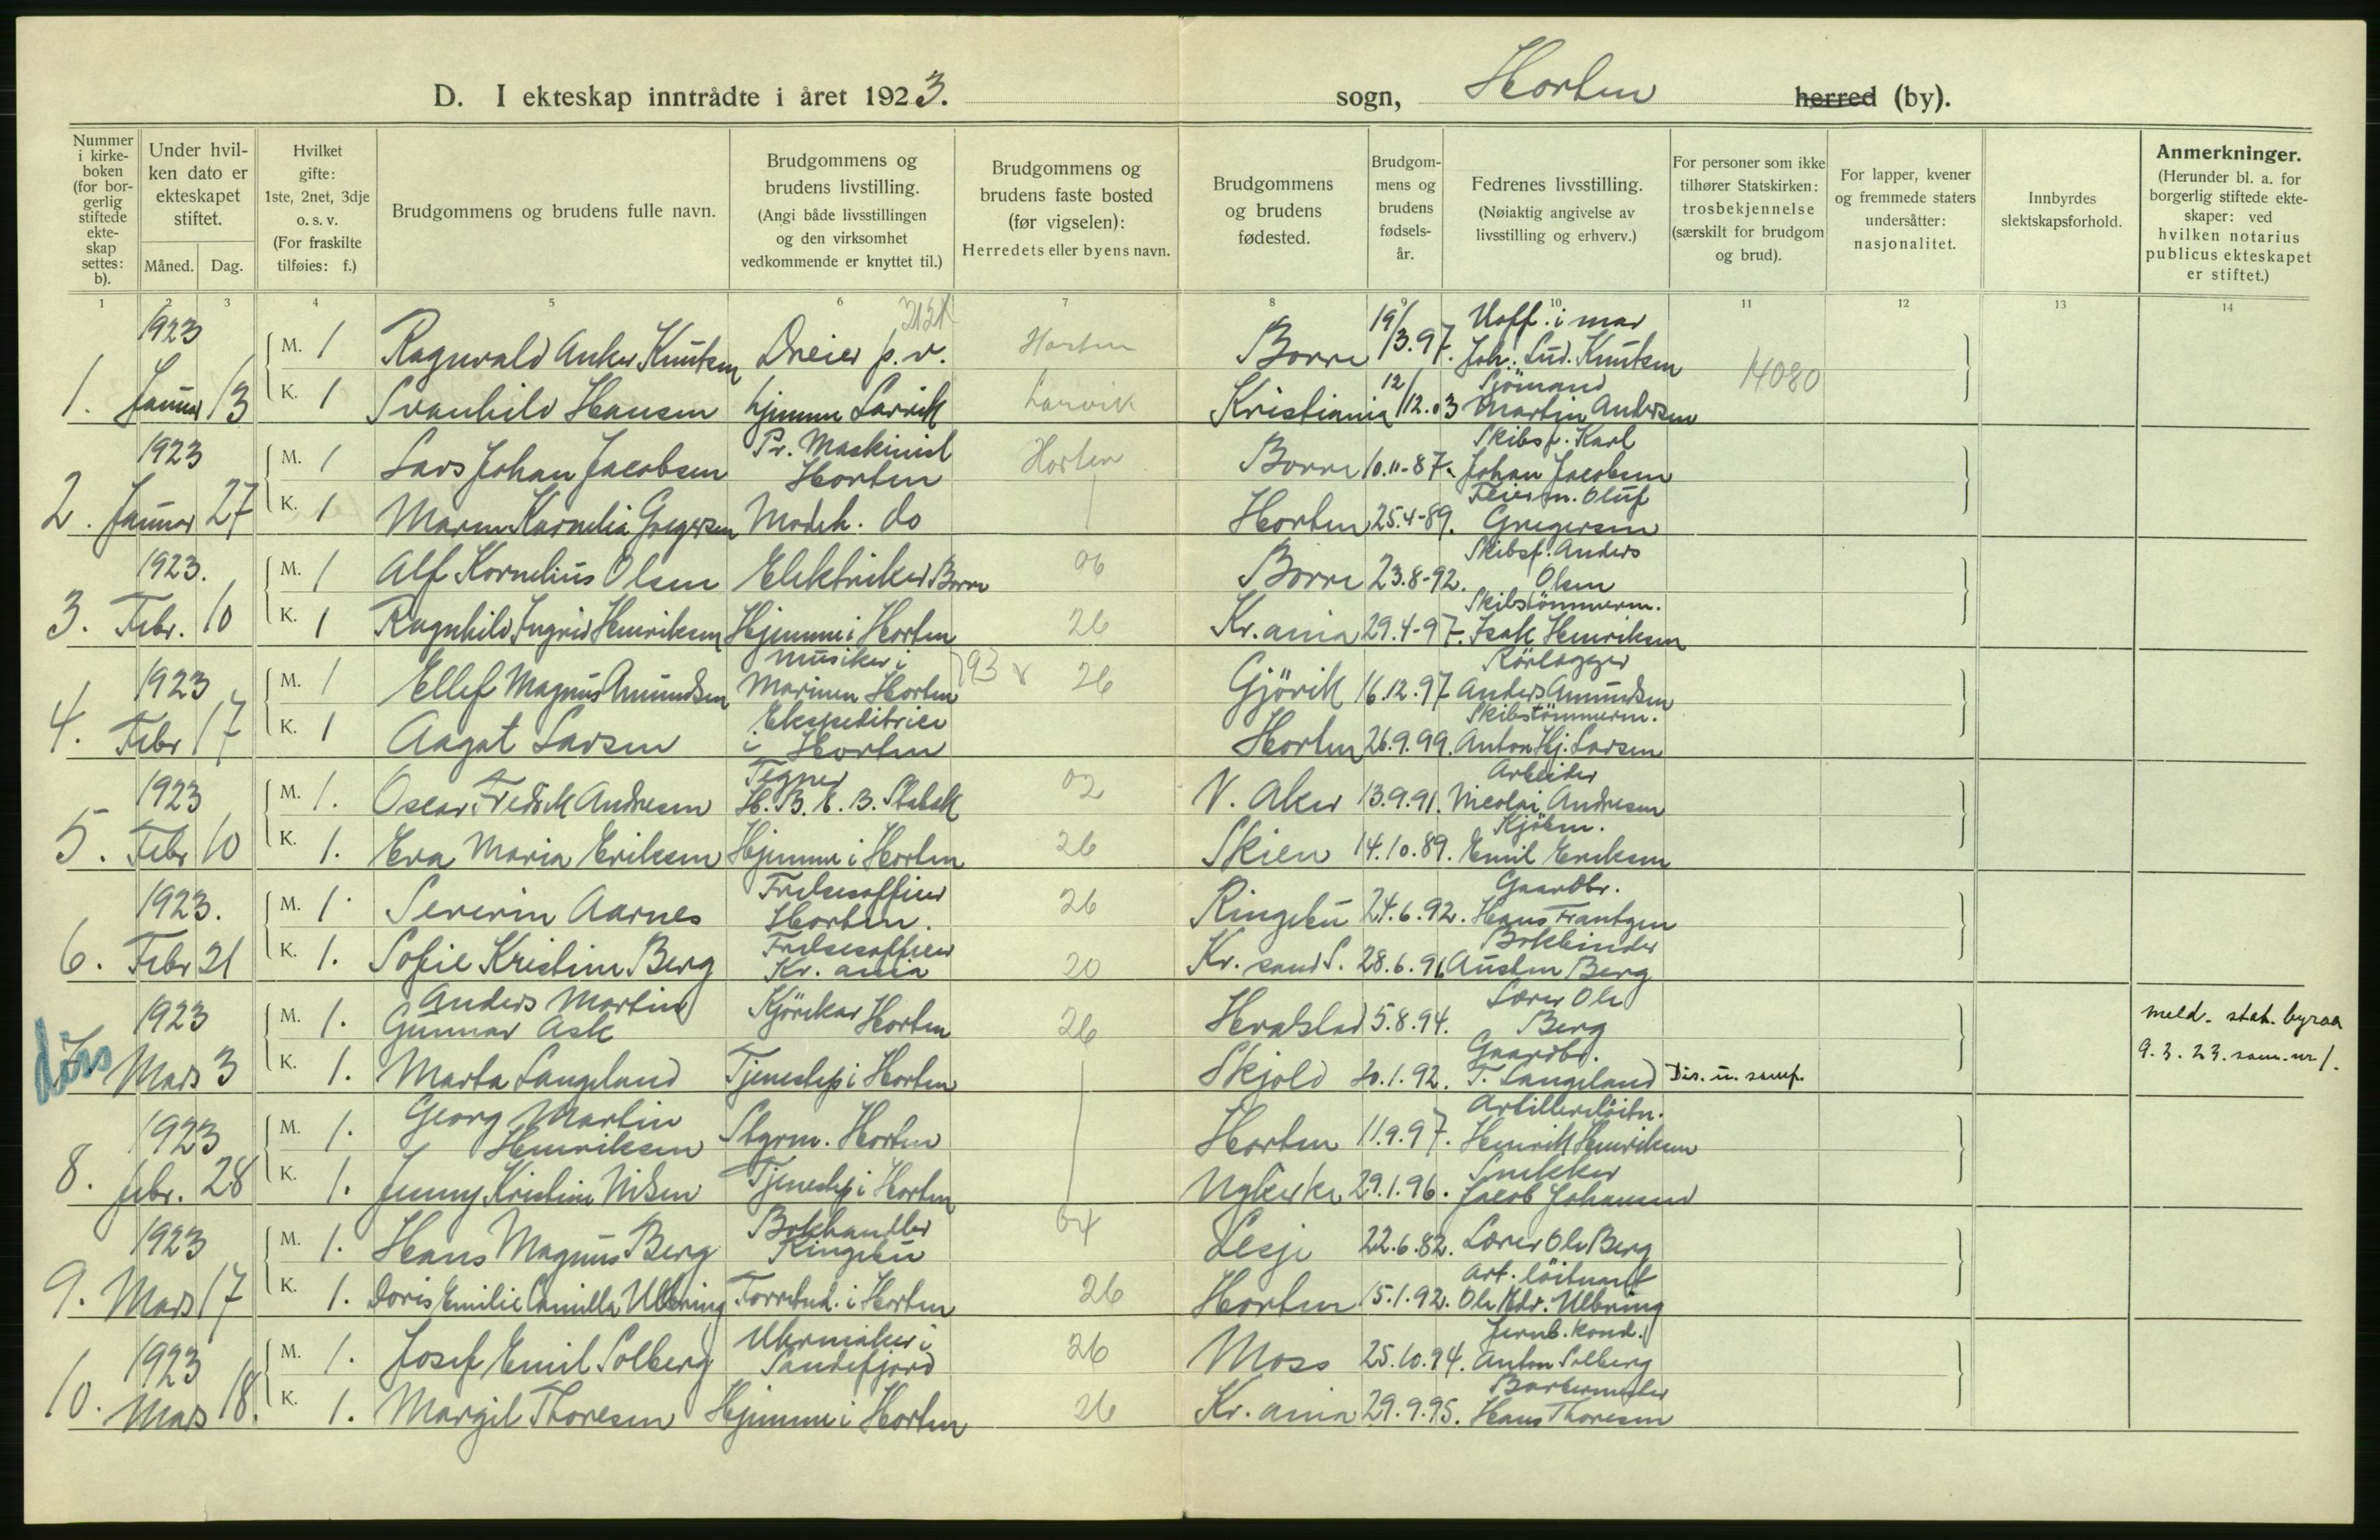 D. I ekteskap inntrådte i året 1923. sogn, Horten herred (by).
Nummer i kirkeboken (for borgerlig stiftede ekteskap settes: b).
Under hvilken dato er ekteskapet stiftet.
Måned. Dag.
Hvilket gifte: 1ste, 2net, 3dje o. s. v. (For fraskilte tilføies: f.)
Brudgommens og brudens fulle navn.
Brudgommens og brudens livstilling. (Angi både livsstillingen og den virksomhet vedkommende er knyttet til.)
Brudgommens og brudens faste bosted (før vigselen): Herredets eller byens navn.
Brudgommens og brudens fødested.
Brudgommens og brudens fødselsår.
Fedrenes livsstilling. (Nøiaktig angivelse av livsstilling og erhverv.)
For personer som ikke tilhører Statskirken: trosbekjennelse (særskilt for brudgom og brud).
For lapper, kvener og fremmede staters undersåtter: nasjonalitet.
Innbyrdes slektskapsforhold.
Anmerkninger. (Herunder bl. a. for borgerlig stiftede ekteskaper: ved hvilken notarius publicus ekteskapet er stiftet.)
1 2 3 4 5 6 7 8 9 10 11 12 13 14
1923 M. 1 Ragnvald Anker Knutsen Dreier p. v. Horten Borre 19/3.97. Uoff. i mar Joh. Lud. Knutsen 14080
1. Januar 13 K. 1 Svanhild Hansen hjemme Larvik Larvik Kristiania 12/12.03 Sjömand Martin Andersen
1923 M. 1 Lars Johan Jacobsen Pr. Maskinist Horten Horten Borre 10.11-87. Skibsf. Karl Johan Jacobsen
2. Januar 27 K. 1 Maren Kornelia Gregersen Modeh. do Horten 25.4-89. Feierm. Oluf Gregersen
1923. M. 1 Alf Kornelius Olsen Elektriker Borre 06 Borre 23.8-92. Skibsf. Anders Olsen
3. Febr. 10 K. 1 Ragnhild Ingrid Henriksen Hjemme i Horten 26 Kr.ania 29.4-97. Skibstömmerm. Isak Henriksen
1923 M. 1 Ellef Magnus Amundsen Musiker i Marinen Horten 793 26 Gjövik 16.12.97 Rörlægger Anders Amundsen
4. Febr 17 K. 1 Aagot Larsen Ekspeditrice i Horten Horten 26.9.99. Skibstömmerm. Anton Hj. Larsen
1923 M. 1. Oscar Fredrik Andresen Tegner H. B. E. B. Stabæk 02 V. Aker 13.9.91. Arbeider Nicolai Andresen
5. Febr 10 K. 1. Eva Maria Eriksen Hjemme i Horten 26 Skien 14.10.89. Kjöbm. Emil Eriksen
1923. M. 1. Severin Aarnes Frelsesoffiser Horten. 26 Ringebu 24.6.92. Gaardbr. Hans Frantzen
6. Febr 21 K. 1. Sofie Kristine Berg Frelsesoffiser Kr. ania 20 Kr. sand S. 28.6.96 Bokbinder Austen Berg
1923 M. 1. Anders Martin Gunnar Ask Kjörekar Horten 26 5.8.94. Lærer Ole Berg meld. stat. byraa
døbs Mars 3 K. 1. Marta Langeland Tjenestep i Horten Skjold 20.1.92. Gaardbr. T. Langeland Dis. u. samf. 9.3.23. som nr 1.
1923 M. 1. Georg Martin Henriksen Styrm. Horten Horten 11.9.97. Artilleriløitn. Henrik Henriksen
8. febr. 28 K. 1. Jenny Kristine Nilsen Tjenestep i Horten Nykirke 29.1.96. Snekker Jacob Johansen
1923 M. 1. Hans Magnus Berg Bokhandler Ringebu 04 Lesje 22.6.82. Lærer Ole Berg
9. Mars 17 K. 1. Doris Emilie Camilla Ulbring Forretnd. i Horten 26 Horten 15.1.92. Art. löitnant Ole Edv. Ulbring
1923 M. 1. Josef Emil Solberg Uhrmaker i Sandefjord 26 Moss 25.10.94. Jernb. kond. Anton Solberg
10. Mars 18. K. 1. Margit Thoresen Hjemme i Horten 26 Kr. ania 29.9.95. Barbermester Hans Thoresen